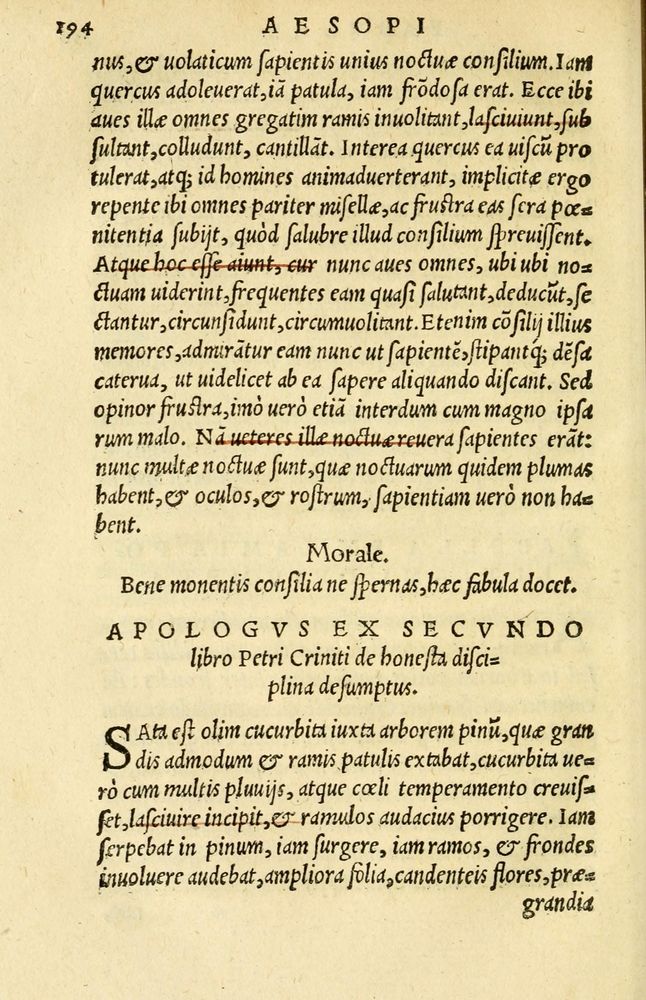 194 AESOPI
nus, & uolaticum sapientis unius noctuæ consilium. Iam
quercus adoleuerat, iã patula, iam frõdosa erat. Ecce ibi
aues illæ omnes gregatim ramis inuolitant, lasciuiunt, sub
sultant, colludunt, cantillãt. Interea quercus ea uiscũ pro
tulerat, atq; id homines animaduerterant, implicitæ ergo
repente ibi omnes pariter misellæ, ac frustra eas sera pœ=
nitentia subijt, quòd salubre illud consilium spreuissent.
Atque hoc esse aiunt, cur nunc aues omnes, ubi ubi no=
ctuam uiderint, frequentes eam quasi salutant, deducũt, se
ctantur, circunsidunt, circumuolitant. Etenim cõsilij illius
memores, admirãtur eam nunc ut sapientẽ, stipantq́; dẽsa
caterua, ut uidelicet ab ea sapere aliquando discant. Sed
opinor frustra, imò uerò etiã interdum cum magno ipsa
rum malo. Nã ueteres illæ noctuæ reuera sapientes erãt:
nunc multæ noctuæ sunt, quæ noctuarum quidem plumas
habent, & oculos, & rostrum, sapientiam uerò non ha=
bent.
Morale.
Bene monentis consilia ne spernas, hæc fabula docet.
APOLOGVS EX SECVNDO
libro Petri Criniti de honesta disci=
plina desumptus.
SAta est olim cucurbita iuxta arborem pinũ, quæ gran
dis admodum & ramis patulis extabat, cucurbita ue=
rò cum multis pluuijs, atque cœli temperamento creuis=
set, lasciuire incipit, & ramulos audacius porrigere. Iam
serpebat in pinum, iam surgere, iam ramos, & frondes
inuoluere audebat, ampliora folia, candenteis flores, præ=
grandia